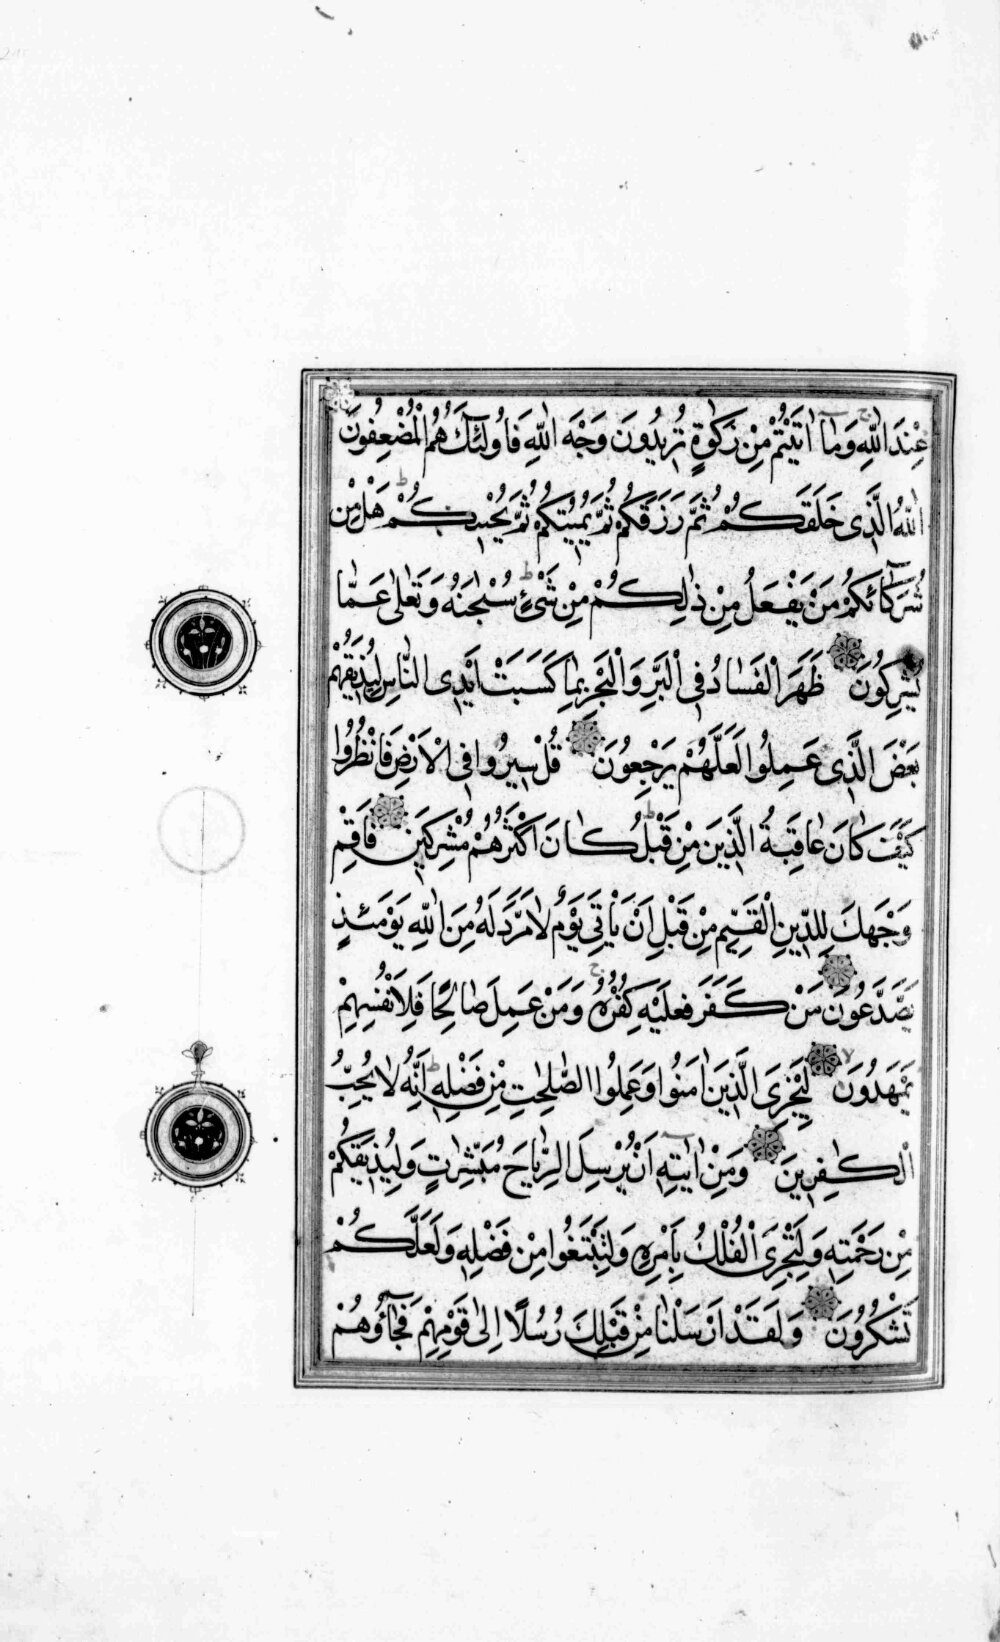 عِنْدَ اللّٰهِ وَمَآ اٰتَيْتُمْ مِنْ زَكٰوةٍ تُرٖيدُونَ وَجْهَ اللّٰهِ فَاُولٰٓئِكَ هُمُ الْمُضْعِفُونَ
اَللّٰهُ الَّذٖى خَلَقَكُمْ ثُمَّ رَزَقَكُمْ ثُمَّ يُمٖيتُكُمْ ثُمَّ يُحْيٖيكُمْ هَلْ مِنْ
شُرَكَآئِكُمْ مَنْ يَفْعَلُ مِنْ ذٰلِكُمْ مِنْ شَىْءٍ سُبْحٰنَهُ وَتَعٰلٰى عَمَّا
يُشْرِكُونَ ظَهَرَ الْفَسَادُ فِى الْبَرِّ وَالْبَحْرِ بِمَا كَسَبَتْ اَيْدِى النَّاسِ لِيُذٖيقَهُمْ
بَعْضَ الَّذٖى عَمِلُوا لَعَلَّهُمْ يَرْجِعُونَ قُلْ سٖيرُوا فِى الْاَرْضِ فَانْظُرُوا
كَيْفَ كَانَ عَاقِبَةُ الَّذٖينَ مِنْ قَبْلُ كَانَ اَكْثَرُهُمْ مُشْرِكٖينَ فَاَقِمْ
وَجْهَكَ لِلدّٖينِ الْقَيِّمِ مِنْ قَبْلِ اَنْ يَأْتِىَ يَوْمٌ لَا مَرَدَّ لَهُ مِنَ اللّٰهِ يَوْمَئِذٍ
يَصَّدَّعُونَ مَنْ كَفَرَ فَعَلَيْهِ كُفْرُهُ وَمَنْ عَمِلَ صَالِحًا فَلِاَنْفُسِهِمْ
يَمْهَدُونَ لِيَجْزِىَ الَّذٖينَ اٰمَنُوا وَعَمِلُوا الصّٰلِحٰتِ مِنْ فَضْلِهٖ اِنَّهُ لَا يُحِبُّ
الْكٰفِرٖينَ وَمِنْ اٰيٰتِهٖٓ اَنْ يُرْسِلَ الرِّيَاحَ مُبَشِّرٰتٍ وَلِيُذٖيقَكُمْ
مِنْ رَحْمَتِهٖ وَلِتَجْرِىَ الْفُلْكُ بِاَمْرِهٖ وَلِتَبْتَغُوا مِنْ فَضْلِهٖ وَلَعَلَّكُمْ
تَشْكُرُونَ وَلَقَدْ اَرْسَلْنَا مِنْ قَبْلِكَ رُسُلًا اِلٰى قَوْمِهِمْ فَجَآؤُهُمْ